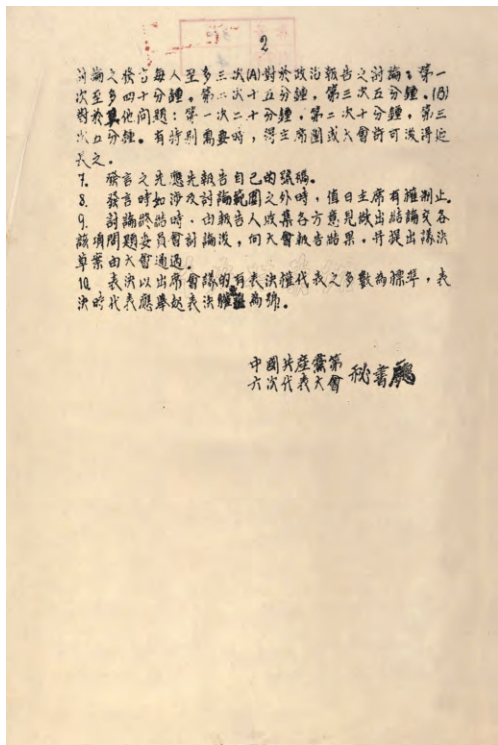 2
討論之後占每人至多三次(A)對於政治報告之討論：第一
次至多四十分鐘。第二次十五分鐘，第三次五分鐘。(B)
對於其他問題：第一次二十分鐘，第二次十分鐘，第三
次五分鐘。有特別需要時，得主席團或大會許可後得延
長之。
7. 發言之先應先報告自己的號碼。
8. 發言時如涉及討論範圍之外時，值日主席有權制止。
9. 討論終結時，由報告人收集各方意見做出結論交各
該項問題委員會討論後，向大會報告結果，并提出議決
草案由大會通過。
10. 表決以出席會議的有表決權代表之多數為標準，表
決時代表應舉起表決權証為號。
中國共產黨第
六次代表大會
秘書處